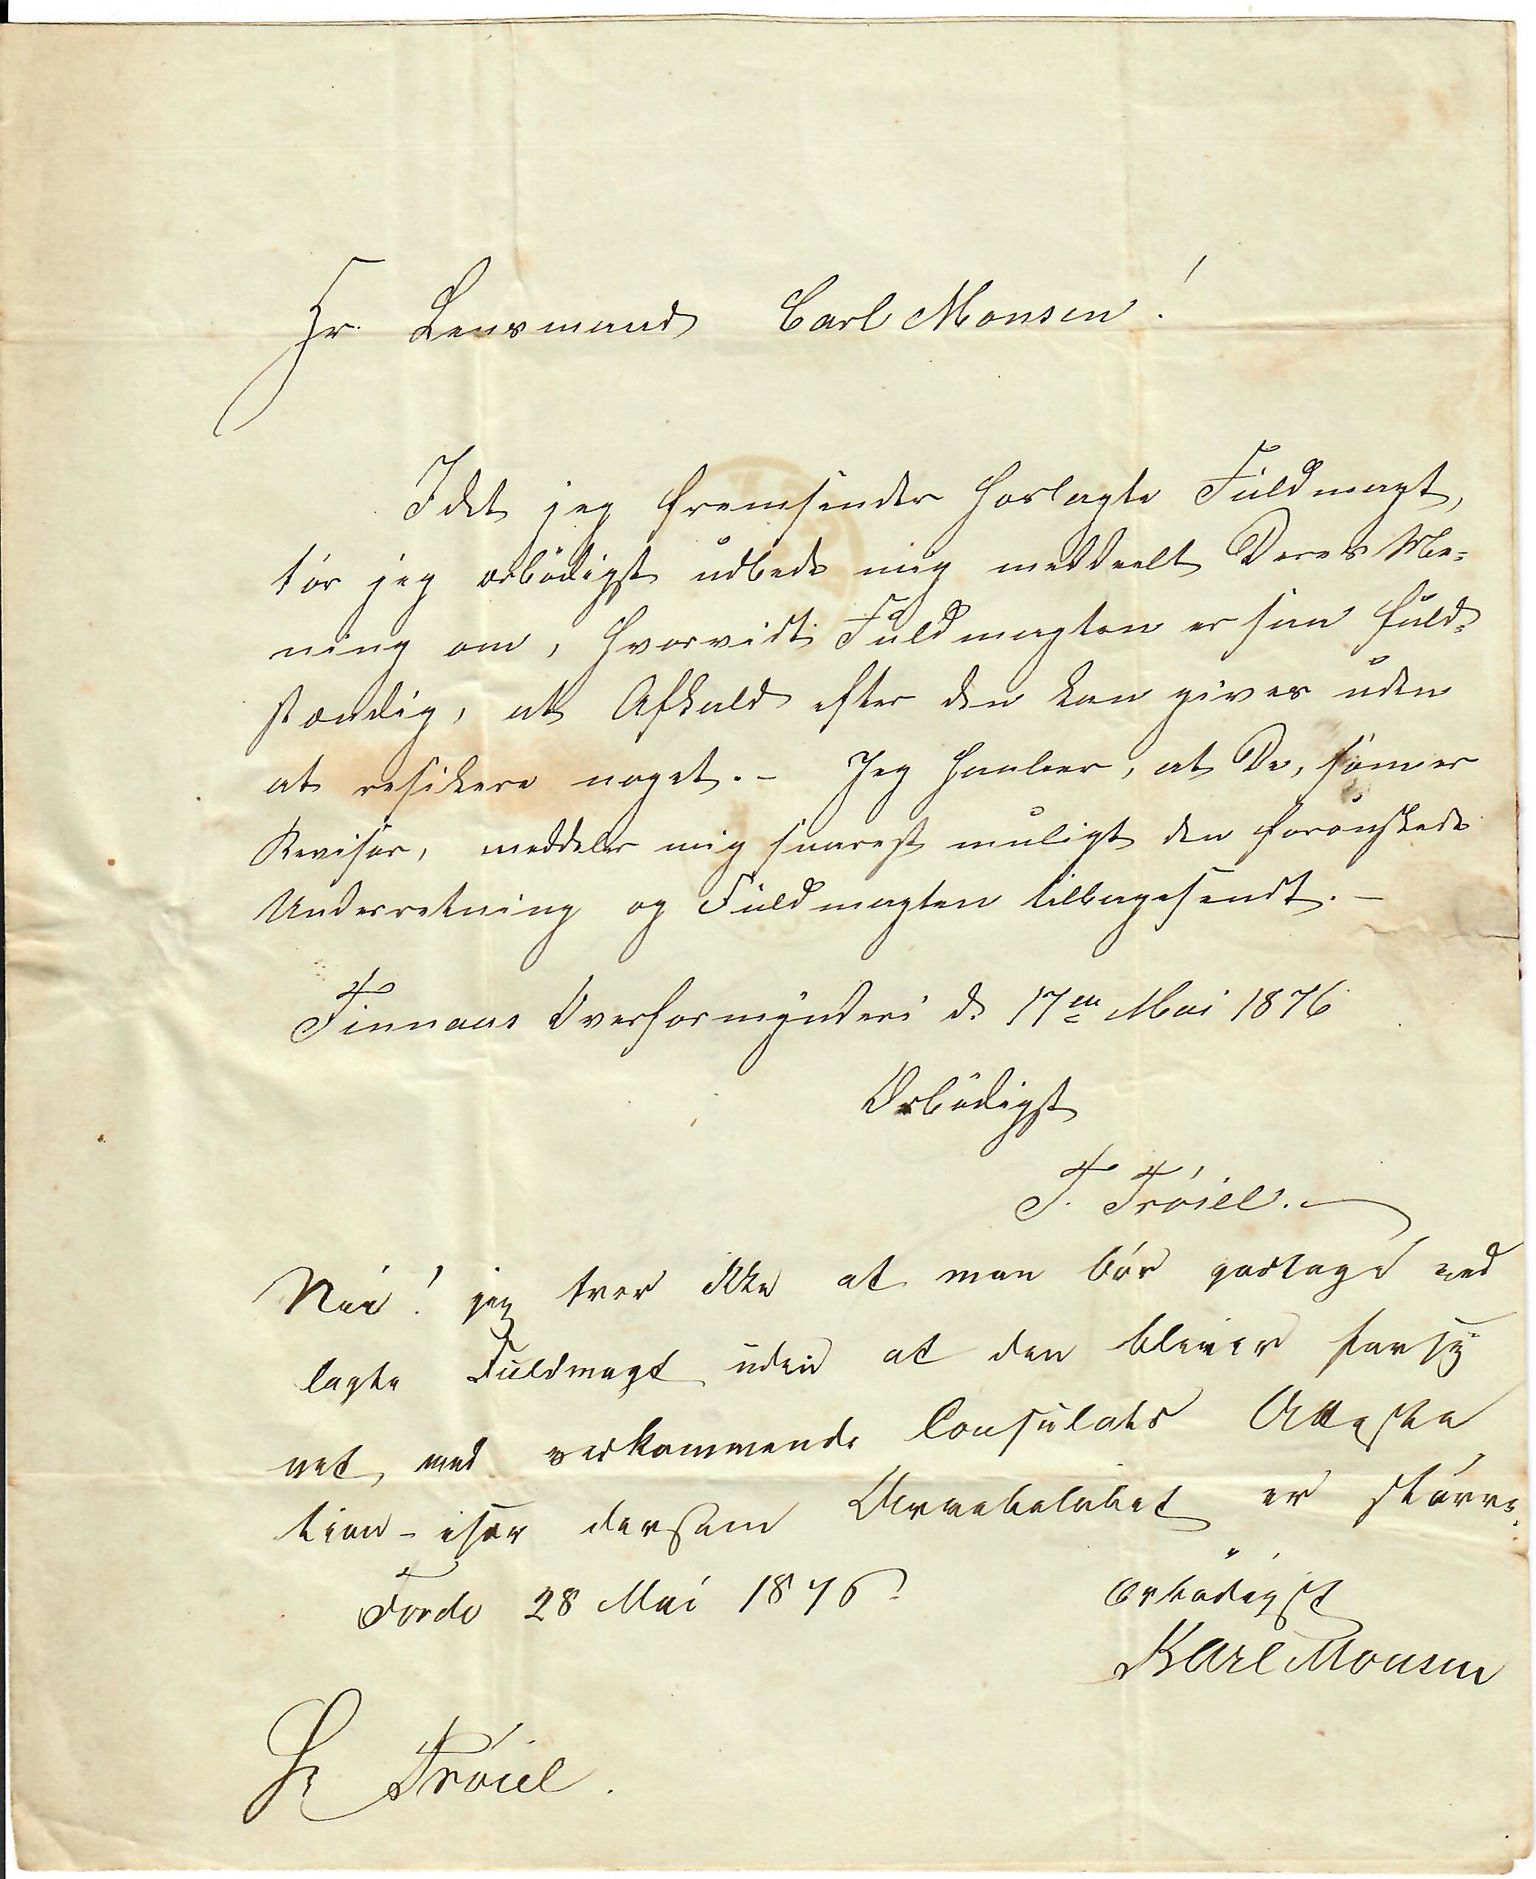 Hr. Lensmand Carl Monsen!
Idet jeg fremsender hoslagte Fuldmagt,
tör jeg ærbödigst udbede mig meddeelt Deres Me-
ning om, hvorvidt Fuldmagten er saa fuld-
stændig, at Afkald efter den kan gives uden
at resikere noget. - Jeg haaber, at De, som er
Revisor, meddeler mig snarest muligt den forönskede
Underretning og Fuldmagten tilbagesendt. -
Finnaas Overformynderi d. 17en Mai 1876
Ærbödigst
T. Tröiel.
Nei! jeg tror ikke at man bör godtage ved
lagte Fuldmagt uden at den bliver forsy
net med vedkommende Consulats Attesta
tion - især dersom Arvebeløbet er större.
Förde 28 Mai 1876.
Ærbödigst
Karl Monsen
Hr Tröiel.